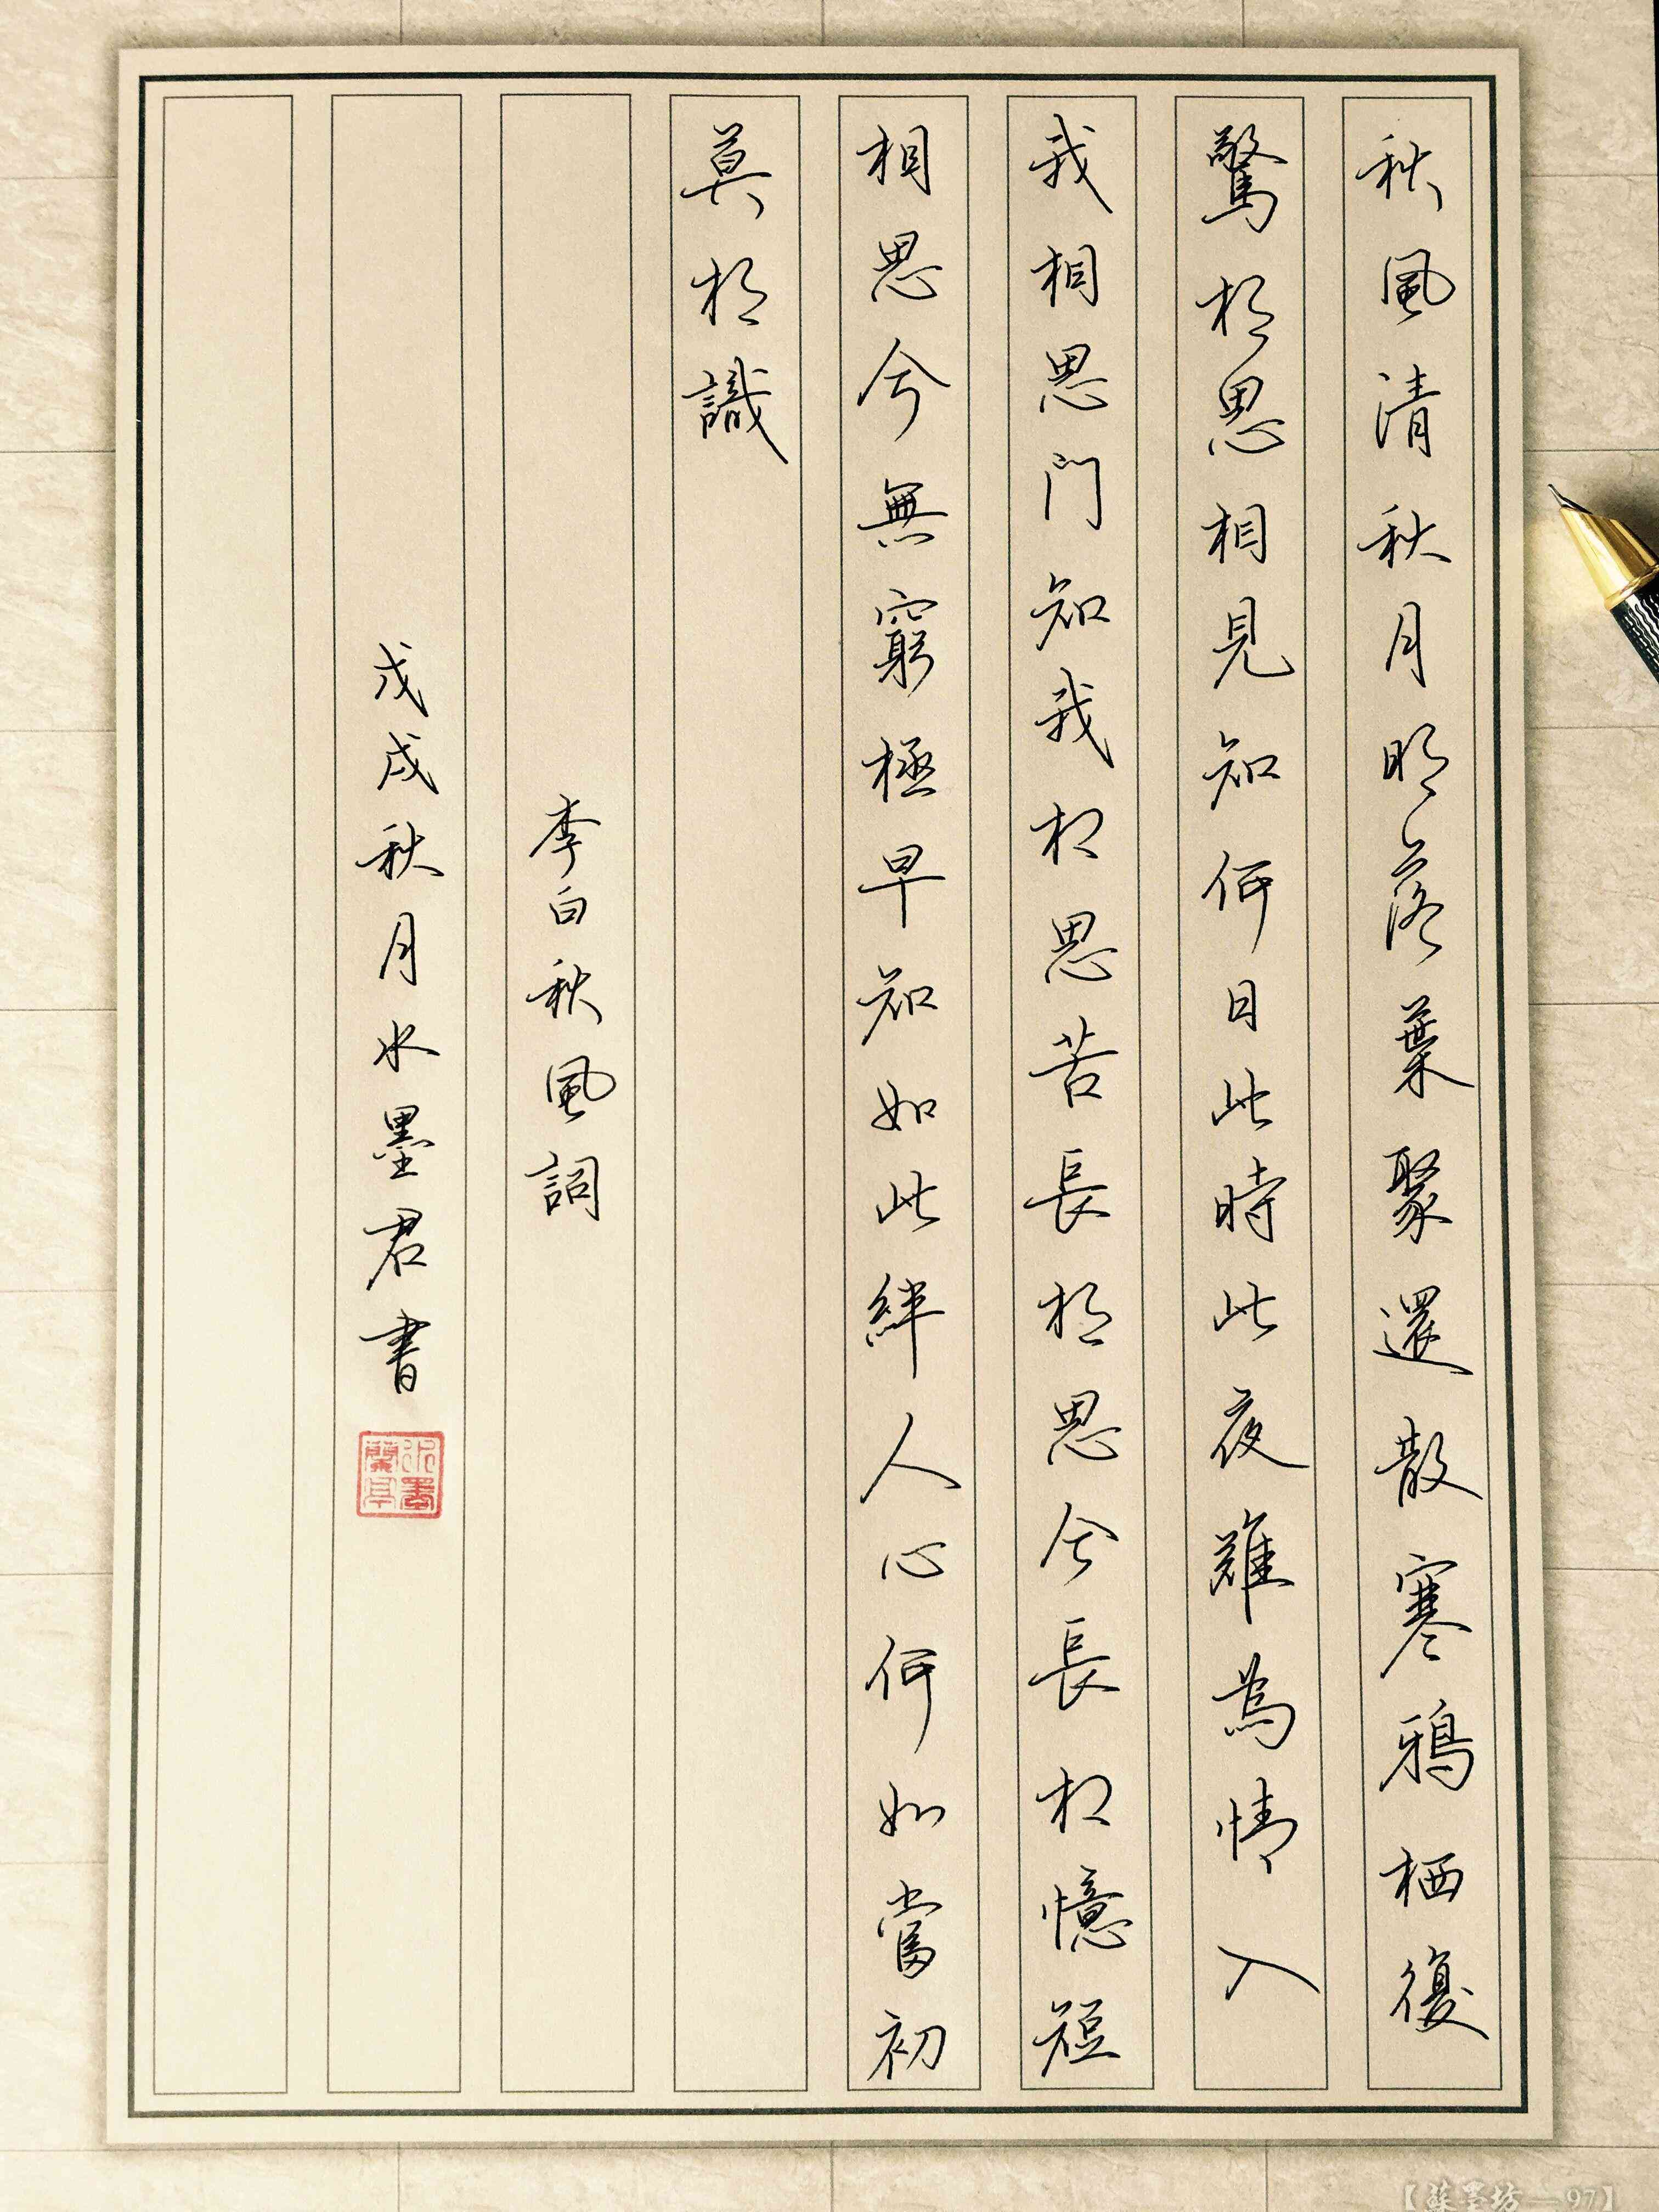 秋風清秋月明落葉聚還散寒鴉栖復
驚相思相見知何日此時此夜難為情入
我相思門知我相思苦長相思兮長相憶短
相思兮無窮極早知如此絆人心何如當初
莫相識
李白秋風詞
戊戌秋月水墨君書
水墨蘭亭